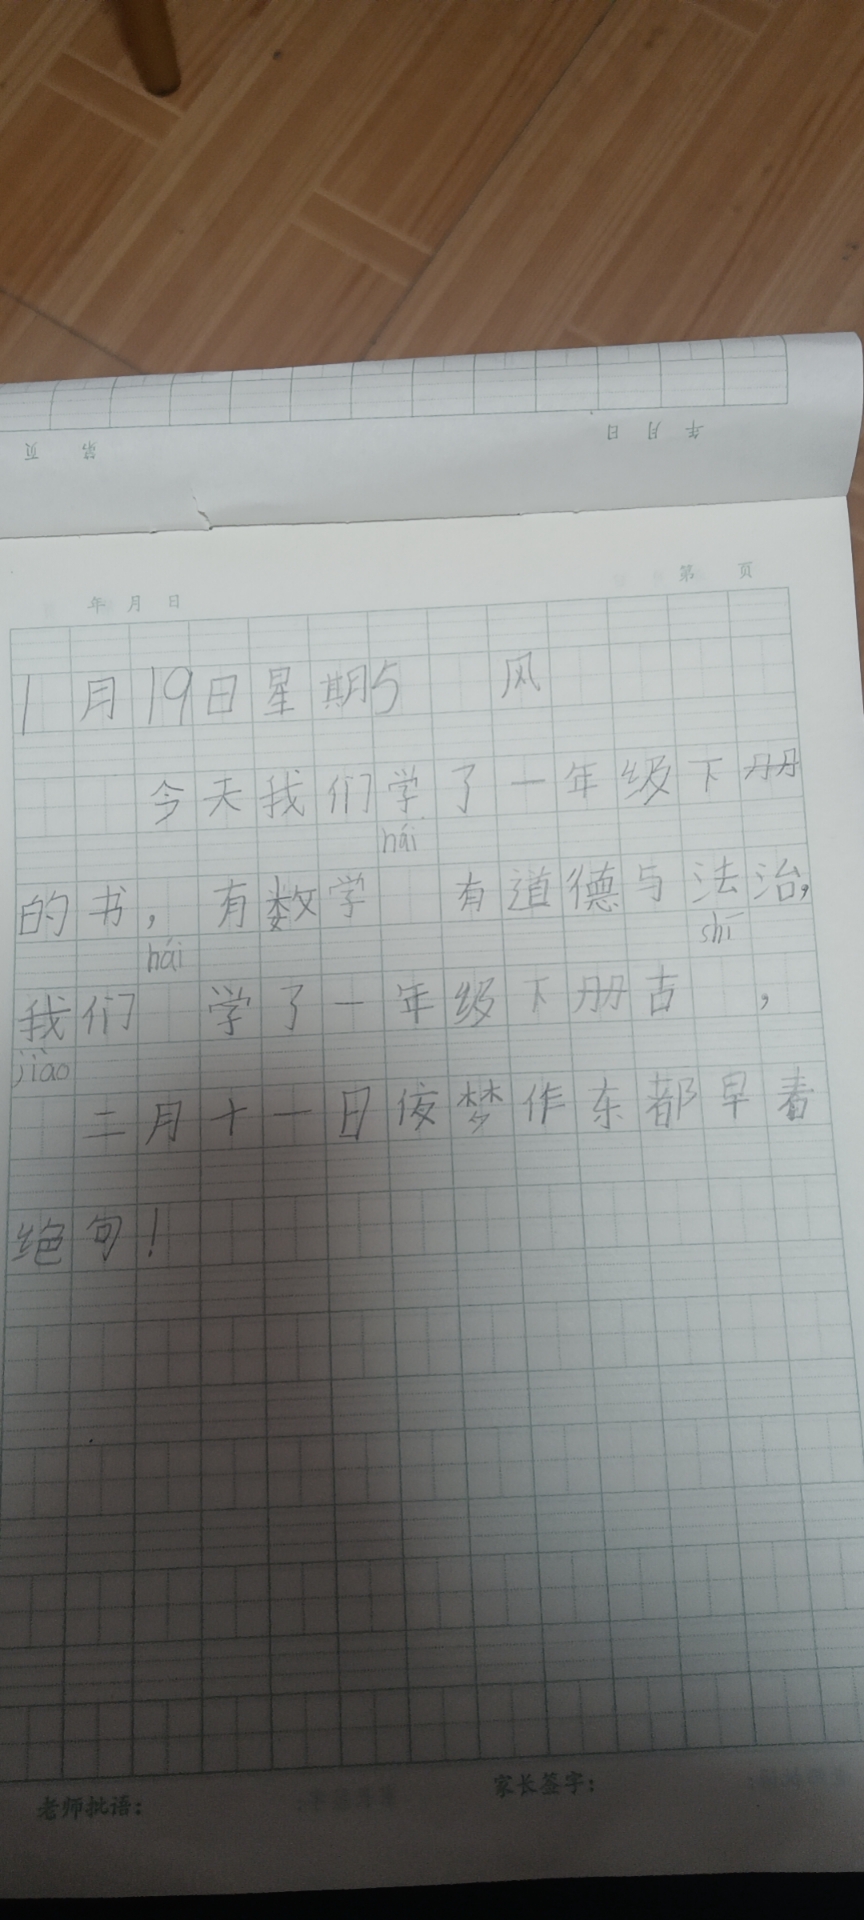 页 第 日 月 年
年 月 日 第 页
1月19日星期5 风
今天我们学了一年级下册
hái
的书，有数学 有道德与法治，
hái shī
我们 学了一年级下册古 ，
jiào
二月十一日夜梦作东都早春
绝句！
老师批语： 家长签字：